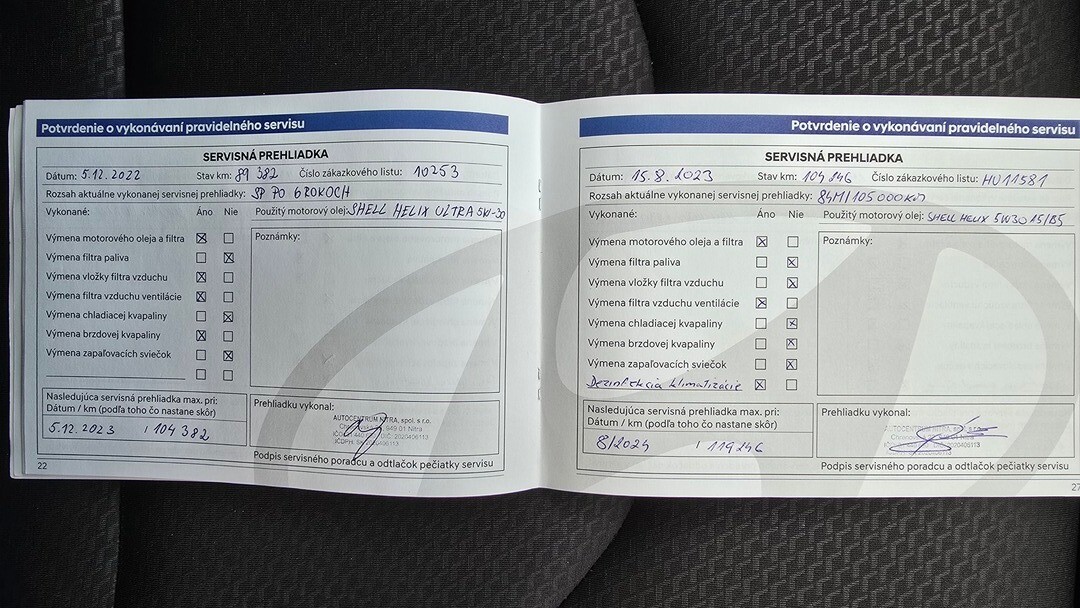 Potvrdenie o vykonávaní pravidelného servisu
SERVISNÁ PREHLIADKA
Dátum: 5.12.2022 Stav km: 89 382 Číslo zákazkového listu: 10253
Rozsah aktuálne vykonanej servisnej prehliadky: SP PO 6 ROKOCH
Vykonané: Áno Nie Použitý motorový olej: SHELL HELIX ULTRA 5W-30
Výmena motorového oleja a filtra
Výmena filtra paliva
Výmena vložky filtra vzduchu
Výmena filtra vzduchu ventilácie
Výmena chladiacej kvapaliny
Výmena brzdovej kvapaliny
Výmena zapaľovacích sviečok
Poznámky:
Nasledujúca servisná prehliadka max. pri:
Dátum / km (podľa toho čo nastane skôr)
5.12.2023 / 104 382
Prehliadku vykonal:
AUTOCENTRUM NITRA, spol. s r.o.
949 01 Nitra
Podpis servisného poradcu a odtlačok pečiatky servisu
22
Potvrdenie o vykonávaní pravidelného servisu
SERVISNÁ PREHLIADKA
Dátum: 15.8.2023 Stav km: 104 246 Číslo zákazkového listu: HU11581
Rozsah aktuálne vykonanej servisnej prehliadky: 84M/105 000km
Vykonané: Áno Nie Použitý motorový olej: SHELL HELIX 5W30 A5/B5
Výmena motorového oleja a filtra
Výmena filtra paliva
Výmena vložky filtra vzduchu
Výmena filtra vzduchu ventilácie
Výmena chladiacej kvapaliny
Výmena brzdovej kvapaliny
Výmena zapaľovacích sviečok
Dezinfekcia klimatizácie
Poznámky:
Nasledujúca servisná prehliadka max. pri:
Dátum / km (podľa toho čo nastane skôr)
8/2024 / 119246
Prehliadku vykonal:
AUTOCENTRUM NITRA, spol. s r.o.
Podpis servisného poradcu a odtlačok pečiatky servisu
27